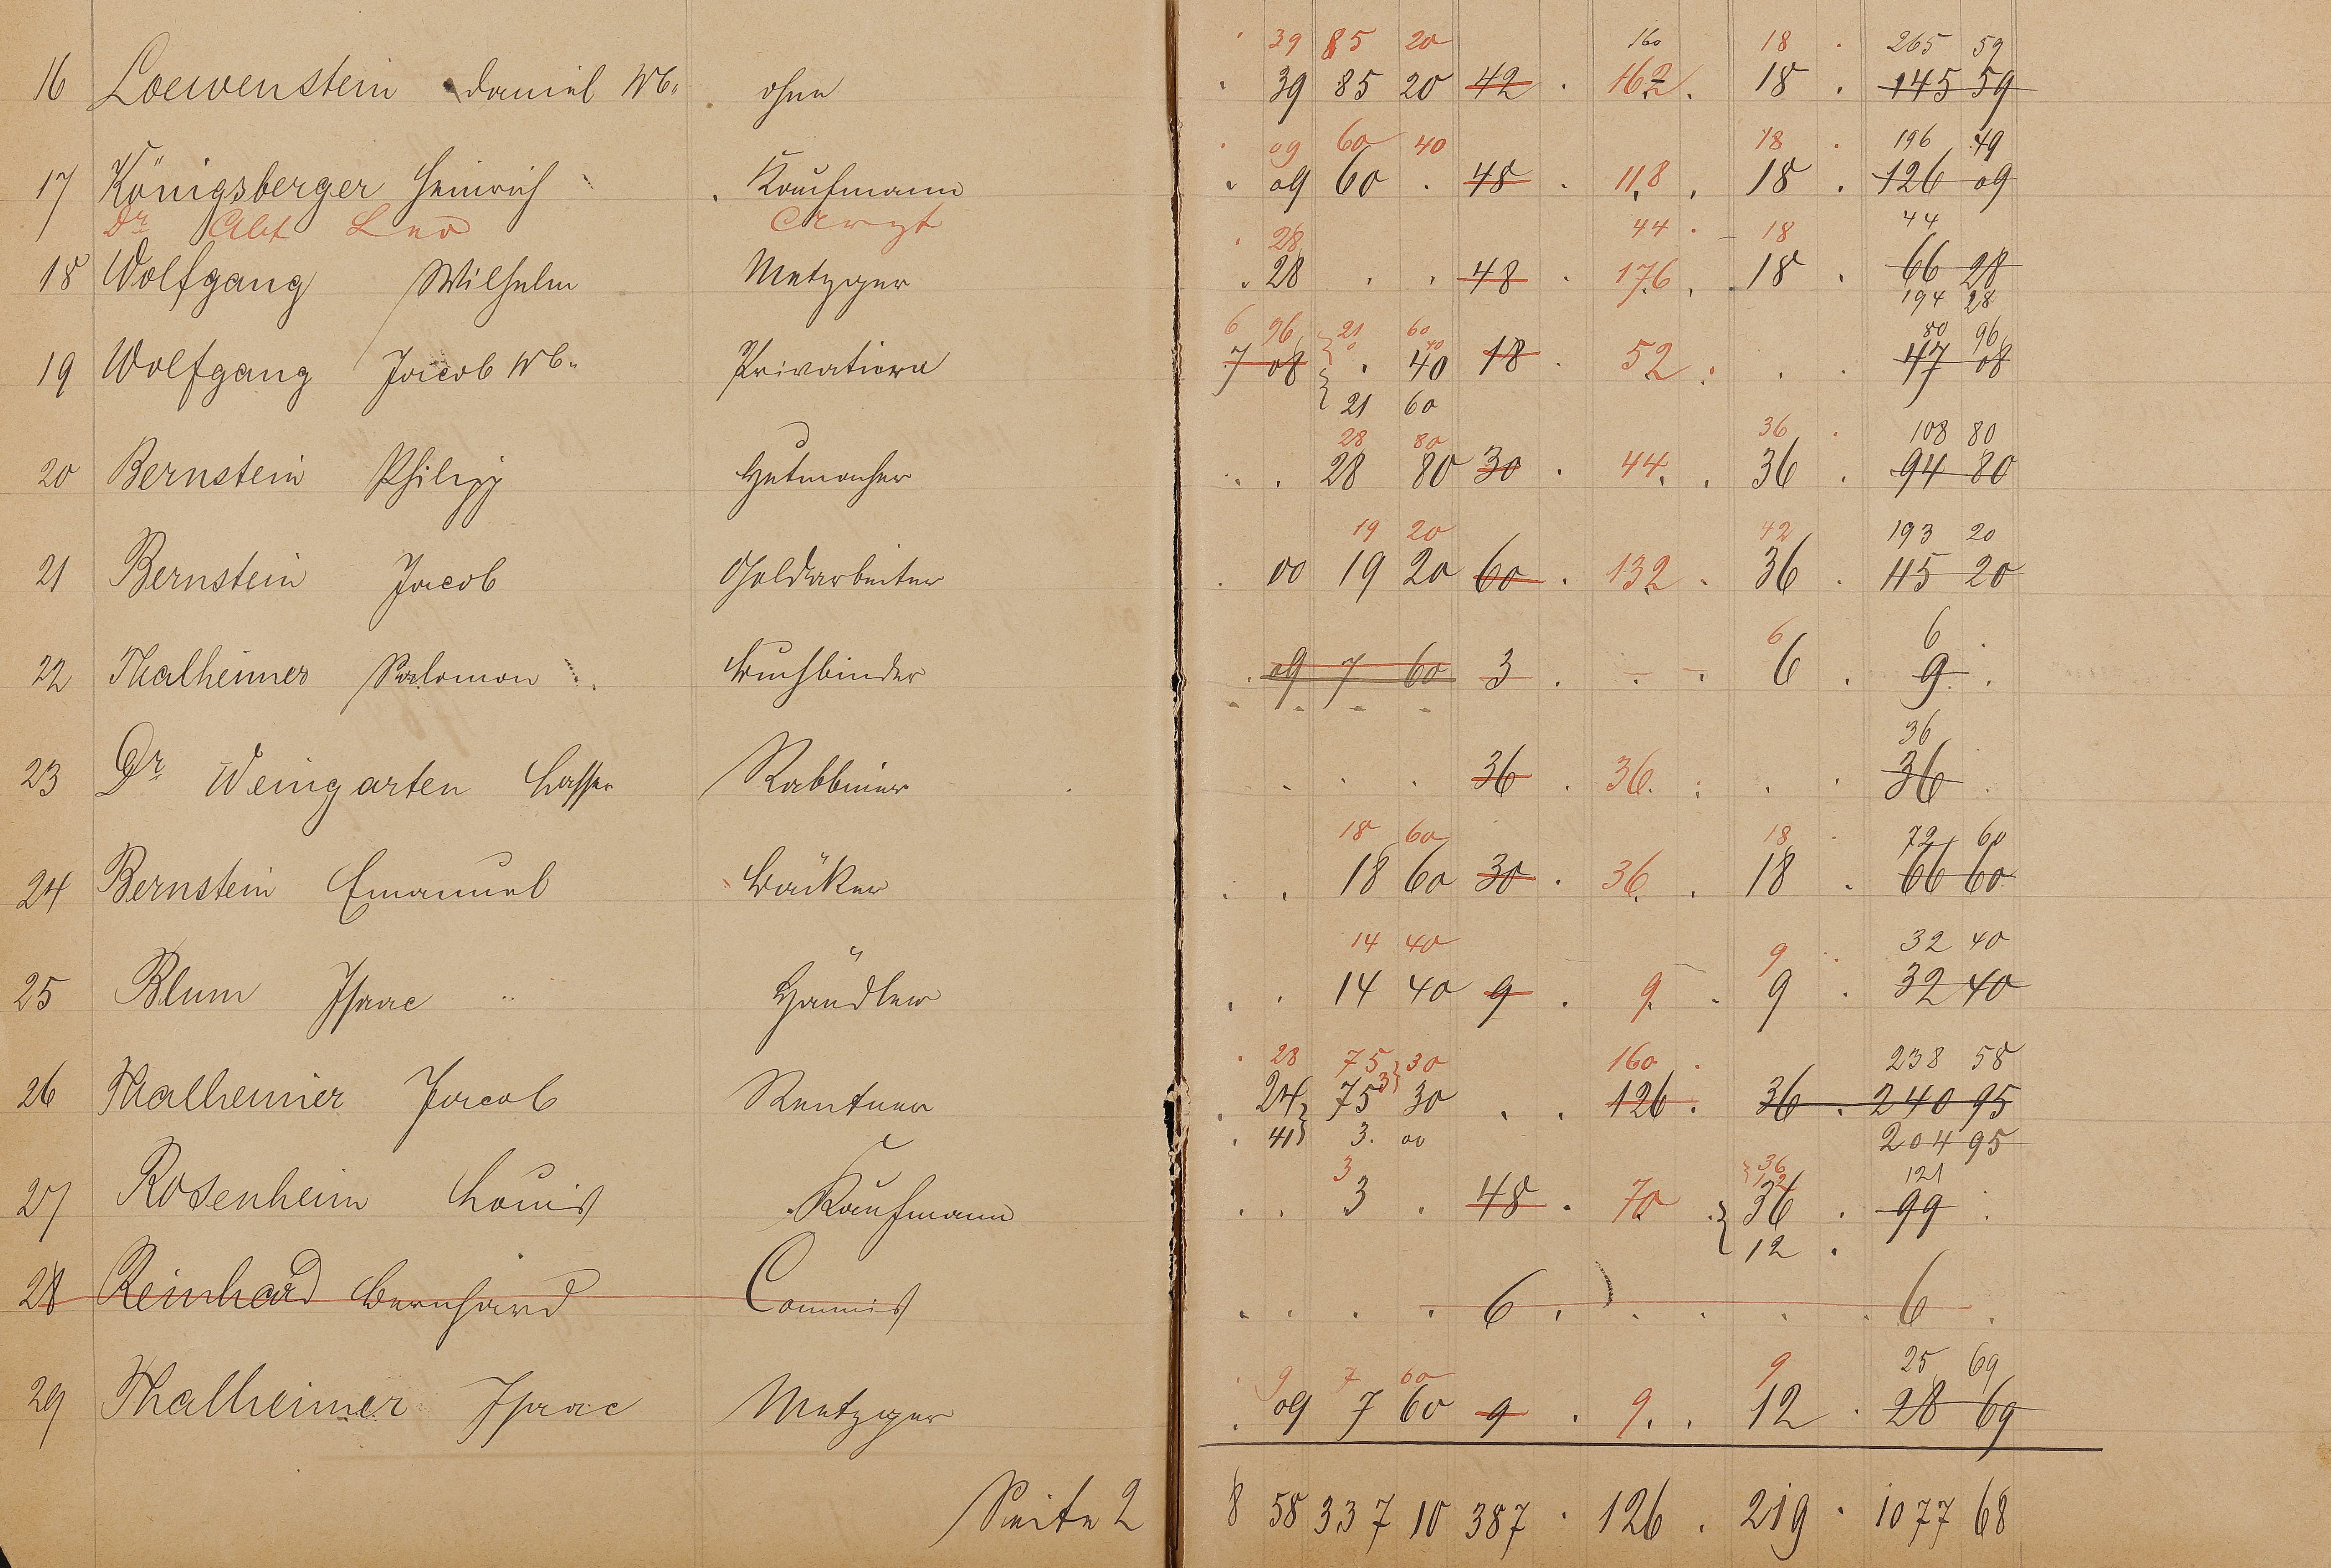 39 85 20 160 18 . 265 59
16 Loewenstein Daniel Wb. ohne . 39 85 20 42 . 162 . 18 . 145 59
. 09 60 40 18 . 196 49
17 Königsberger Heinrich Kaufmann . 09 60 . 48 . 118 . 18 . 126 09
Dr Abt Leo Arzt . 28 44 . 18 44
18 Wolfgang Wilhelm Metzger . 28 . . 48 . 176 . 18 . 66 28
194 28
6 96 21 60 80 96
19 Wolfgang Jacob Wb. Privatiere 7 08 . 40 18 . 52 . . . 47 08
21 60
28 80 36 . 108 80
20 Bernstein Philipp Hutmacher . . 28 80 30 . 44 . 36 . 94 80
19 20 42 193 20
21 Bernstein Jacob Goldarbeiter . 00 19 20 60 . 132 . 36 . 115 20
6 6
22 Thalheimer Salomon Buchbinder . 09 7 60 3 . . . 6 . 9 .
36
23 Dr Weingarten Rabbiner . . . 36 . 36 . . . 36 .
18 60 18 . 72 60
24 Bernstein Emanuel Bäcker . . 18 60 30 . 36 . 18 . 66 60
14 40 9 . 32 40
25 Blum Isaac Händler . . 14 40 9 . 9 . 9 . 32 40
. 28 75 30 160 . 238 58
3
26 Thalheimer Jacob Rentner . 24 75 30 . . 126 . 36 . 240 95
. 41 3. 00 204 95
3 36 121
12
27 Rosenheim Louis Kaufmann . . 3 . 48 . 70 . 36 . 99 .
12 .
28 Reinhard Bernhard Commis . . . . 6 . . . . . 6 .
. 9 7 60 9 25 69
29 Thalheimer Isaac Metzger . 09 7 60 9 . 9 . 12 . 28 69
Seite 2 8 58 337 10 387 . 126 . 219 . 1077 68